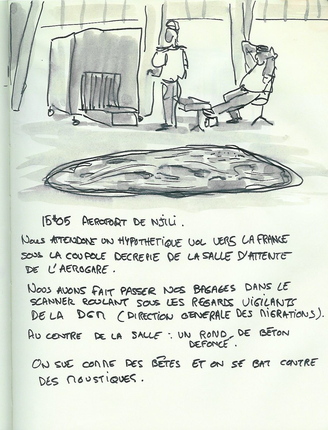 15H05 AEROPORT DE NJILI.
NOUS ATTENDONS UN HYPOTHETIQUE VOL VERS LA FRANCE
SOUS LA COUPOLE DECREPIE DE LA SALLE D'ATTENTE
DE L'AEROGARE.
NOUS AVONS FAIT PASSER NOS BAGAGES DANS LE
SCANNER ROULANT SOUS LES REGARDS VIGILANTS
DE LA DGM (DIRECTION GENERALE DES MIGRATIONS).
AU CENTRE DE LA SALLE : UN ROND DE BETON
DEFONCÉ.
ON SUE COMME DES BÊTES ET ON SE BAT CONTRE
DES MOUSTIQUES.